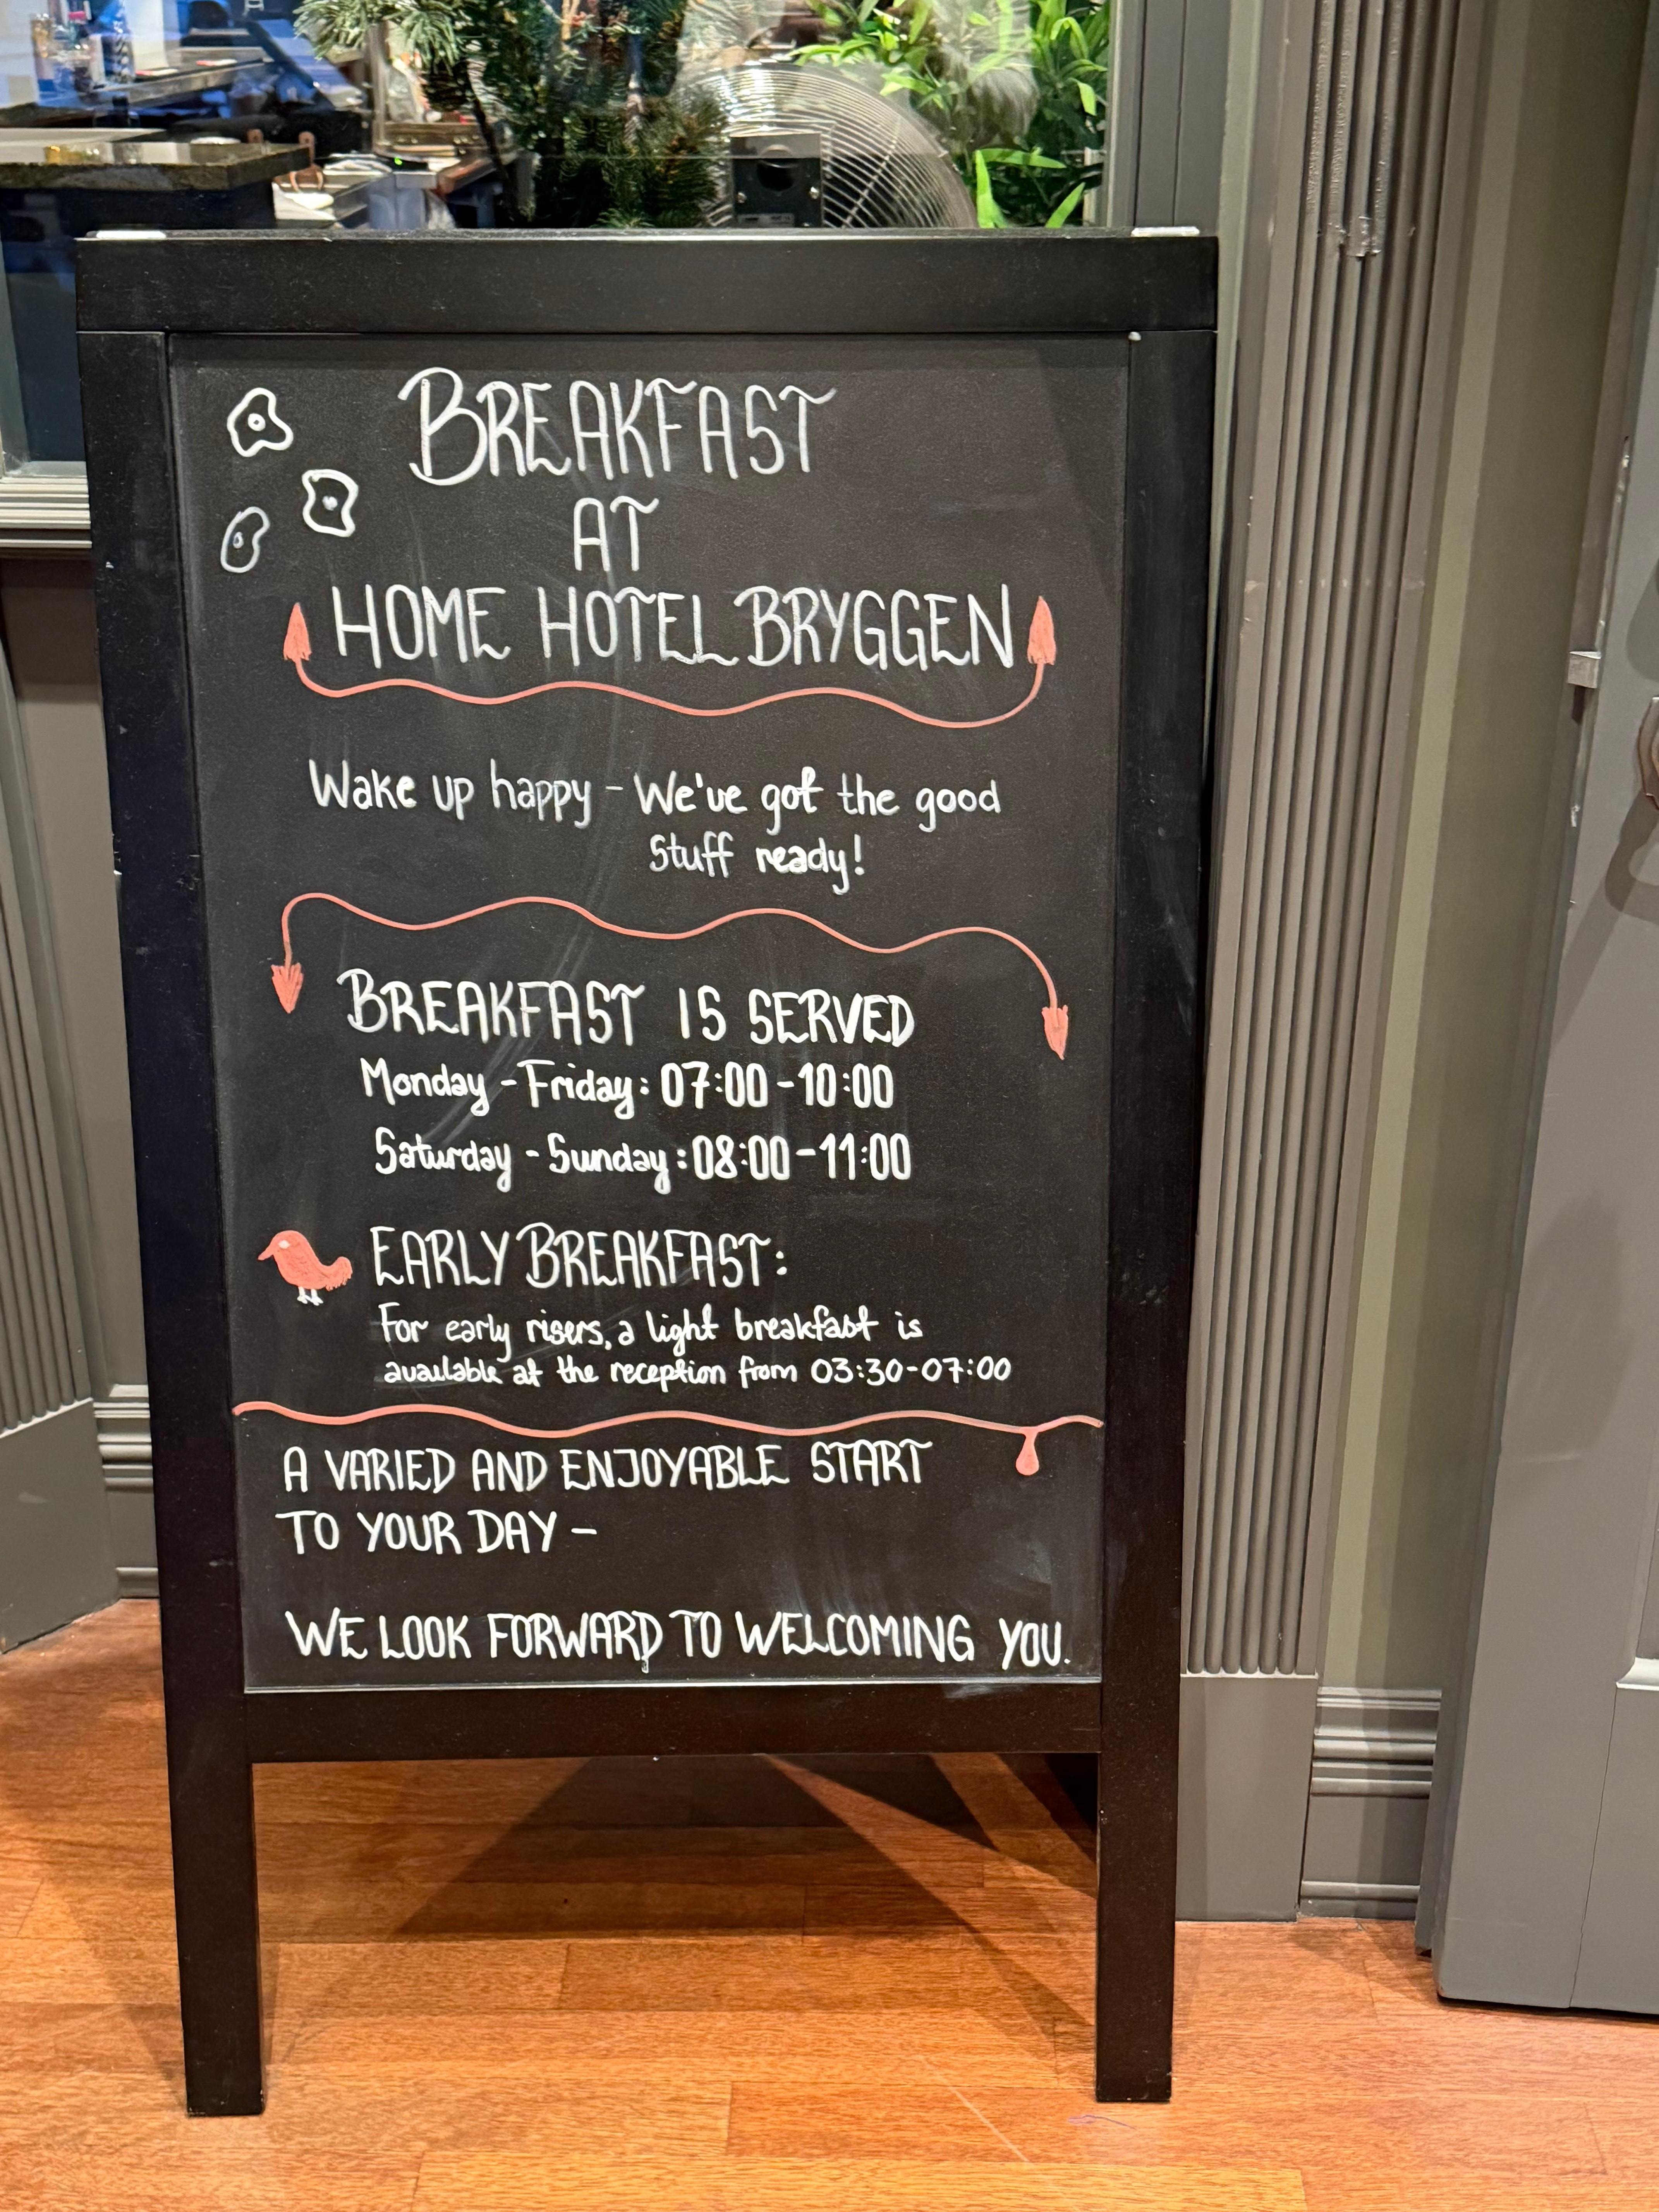 BREAKFAST
AT
HOME HOTEL BRYGGEN
Wake up happy - We've got the good
stuff ready!
BREAKFAST IS SERVED
Monday - Friday: 07:00 - 10:00
Saturday - Sunday: 08:00 - 11:00
EARLY BREAKFAST:
For early risers, a light breakfast is
available at the reception from 03:30-07:00
A VARIED AND ENJOYABLE START
TO YOUR DAY -
WE LOOK FORWARD TO WELCOMING YOU.